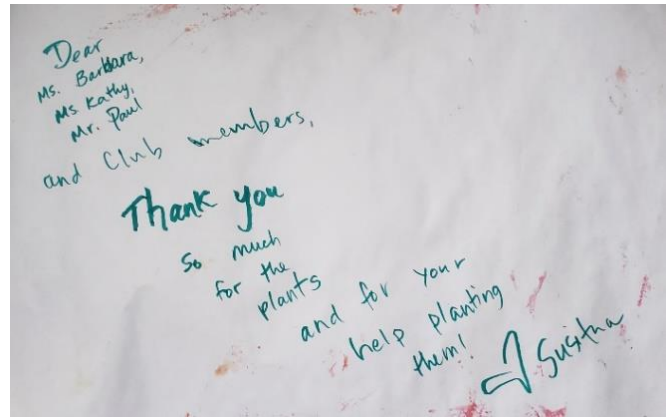 Dear
Ms. Barbara,
Ms. Kathy,
Mr. Paul
and Club members,
Thank you
so much
for the
plants
and for your
help planting
them!
Susitna